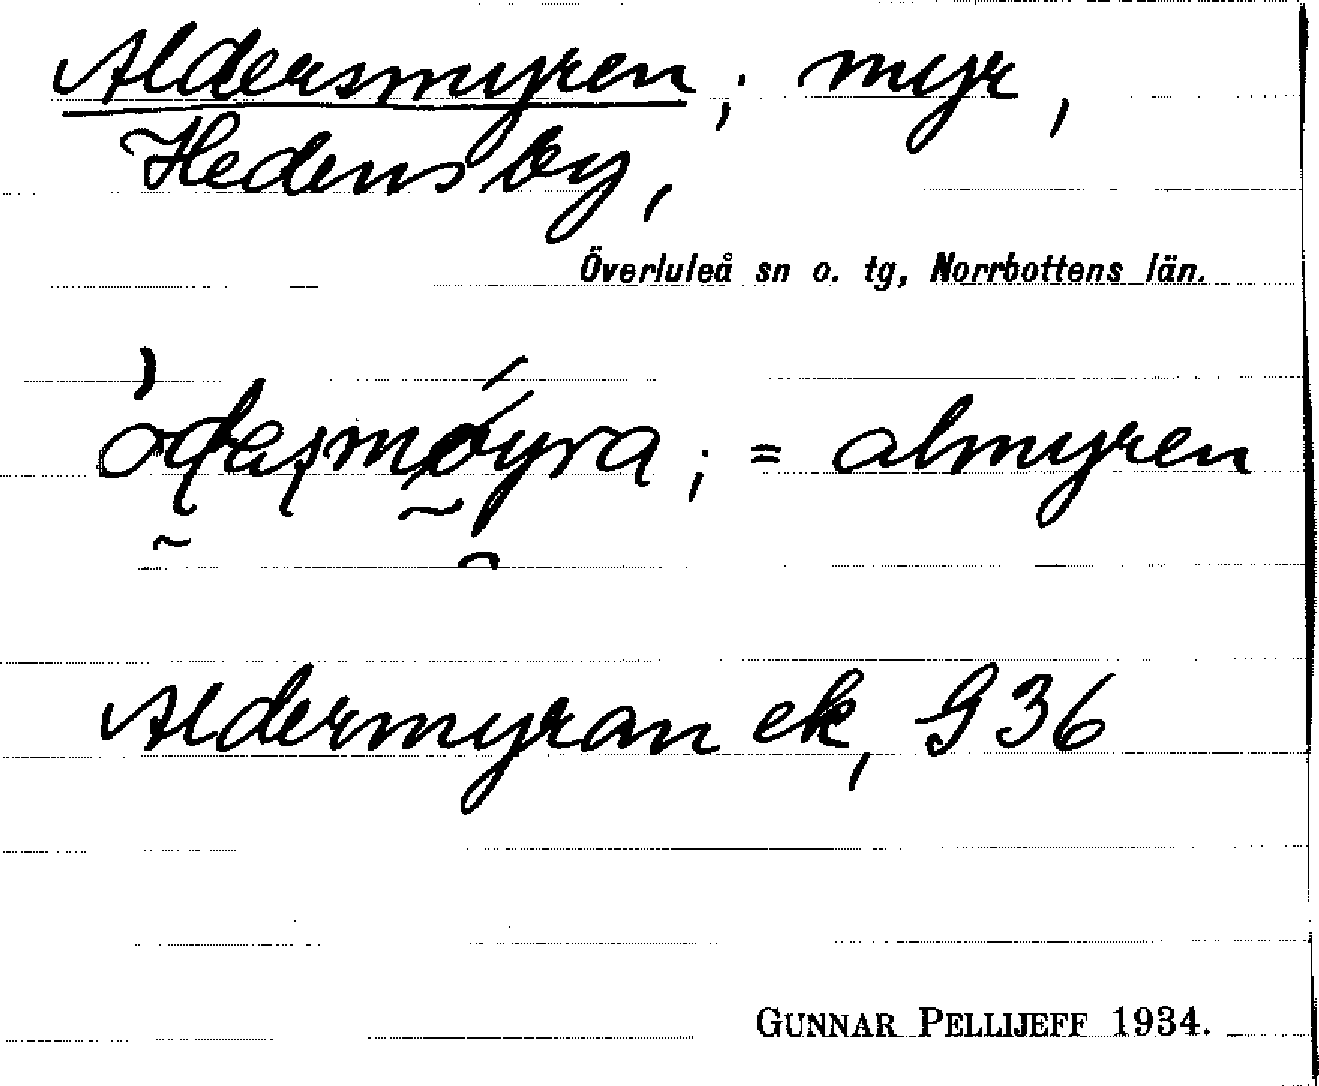 Aldersmyren; myr,
Hedensby,
Överluleå sn o. tg, Norrbottens län.
; = almyren
Aldermyran ek, G 36
GUNNAR PELLIJEFF 1934.